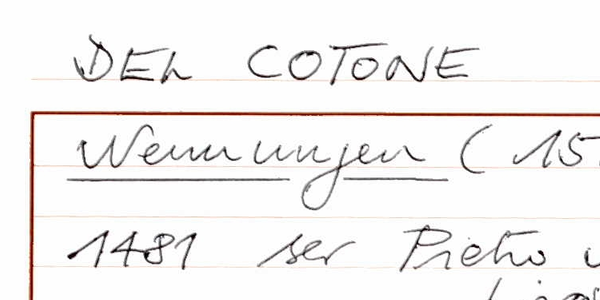 DEL COTONE
Nennungen ( 15
1481 ser Pietro